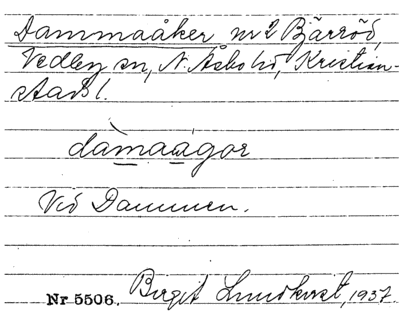 Dammaåker nr 2 Bjärröd,
Vedby sn, N. Åsbo hd, Kristian-
stad l.
dàmaagor
Vid Dammen.
Nr 5506. Birgit Lundkvist, 1937